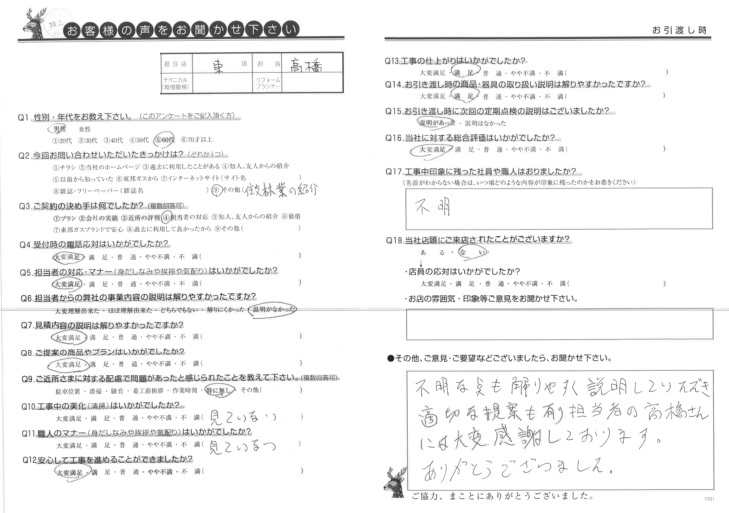 お客様の声をお聞かせ下さい
担当店 東 店 担当 高橋
テクニカル (現場監督) リフォームプランナー
Q1.性別・年代をお教え下さい。(このアンケートをご記入頂く方)
男性 女性
①20代 ②30代 ③40代 ④50代 ⑤60代 ⑥70才以上
Q2.今回お問い合わせいただいたきっかけは?(どれか1つ)
①チラシ ②当社のホームページ ③過去に利用したことがある ④知人、友人からの紹介
⑤以前から知っていた ⑥東邦ガスから ⑦インターネットサイト(サイト名 )
⑧雑誌・フリーペーパー(雑誌名 ) ⑨その他( 林業の紹介
Q3.ご契約の決め手は何でしたか?(複数回答可)
①プラン ②会社の実績 ③近所の評判 ④担当者の対応 ⑤知人、友人からの紹介 ⑥価格
⑦東邦ガスブランドで安心 ⑧過去に利用して良かったから ⑨その他( )
Q4.受付時の電話応対はいかがでしたか?
大変満足・満 足・普 通・やや不満・不 満( )
Q5.担当者の対応・マナー(身だしなみや挨拶や気配り)はいかがでしたか?
大変満足・満 足・普 通・やや不満・不 満( )
Q6.担当者からの弊社の事業内容の説明は解りやすかったですか?
大変理解出来た・ほぼ理解出来た・どちらでもない・解りにくかった・説明がなかった
Q7.見積内容の説明は解りやすかったですか?
大変満足・満 足・普 通・やや不満・不 満( )
Q8.ご提案の商品やプランはいかがでしたか?
大変満足・満 足・普 通・やや不満・不 満( )
Q9.ご近所さまに対する配慮で問題があったと感じられたことを教えて下さい。(複数回答可)
駐車位置・清掃・騒音・着工前挨拶・作業時間・特に無し・その他( )
Q10.工事中の美化(清掃)はいかがでしたか?
大変満足・満 足・普 通・やや不満・不 満( 見ていない
Q11.職人のマナー(身だしなみや挨拶や気配り)はいかがでしたか?
大変満足・満 足・普 通・やや不満・不 満( 見ていない
Q12.安心して工事を進めることができましたか?
大変満足・満 足・普 通・やや不満・不 満( )
お引渡し時
Q13.工事の仕上がりはいかがでしたか?
大変満足・満 足・普 通・やや不満・不 満( )
Q14.お引き渡し時の商品・器具の取り扱い説明は解りやすかったですか?
大変満足・満 足・普 通・やや不満・不 満( )
Q15.お引き渡し時に次回の定期点検の説明はございましたか?
説明があった・説明はなかった
Q16.当社に対する総合評価はいかがでしたか?
大変満足・満 足・普 通・やや不満・不 満( )
Q17.工事中印象に残った社員や職人はおりましたか?
(名前がわからない場合は、いつ頃どのような内容が印象に残ったのかをお書きください)
不明
Q18.当社店頭にご来店されたことがございますか?
あ る・な い
・店員の応対はいかがでしたか?
大変満足・満 足・普 通・やや不満・不 満( )
・お店の雰囲気・印象等ご意見をお聞かせ下さい。
●その他、ご意見・ご要望などございましたら、お聞かせ下さい。
不明な点も解りやすく説明していただき
適切な提案も有り担当者の高橋さん
には大変感謝しております。
ありがとうございました。
ご協力、まことにありがとうございました。